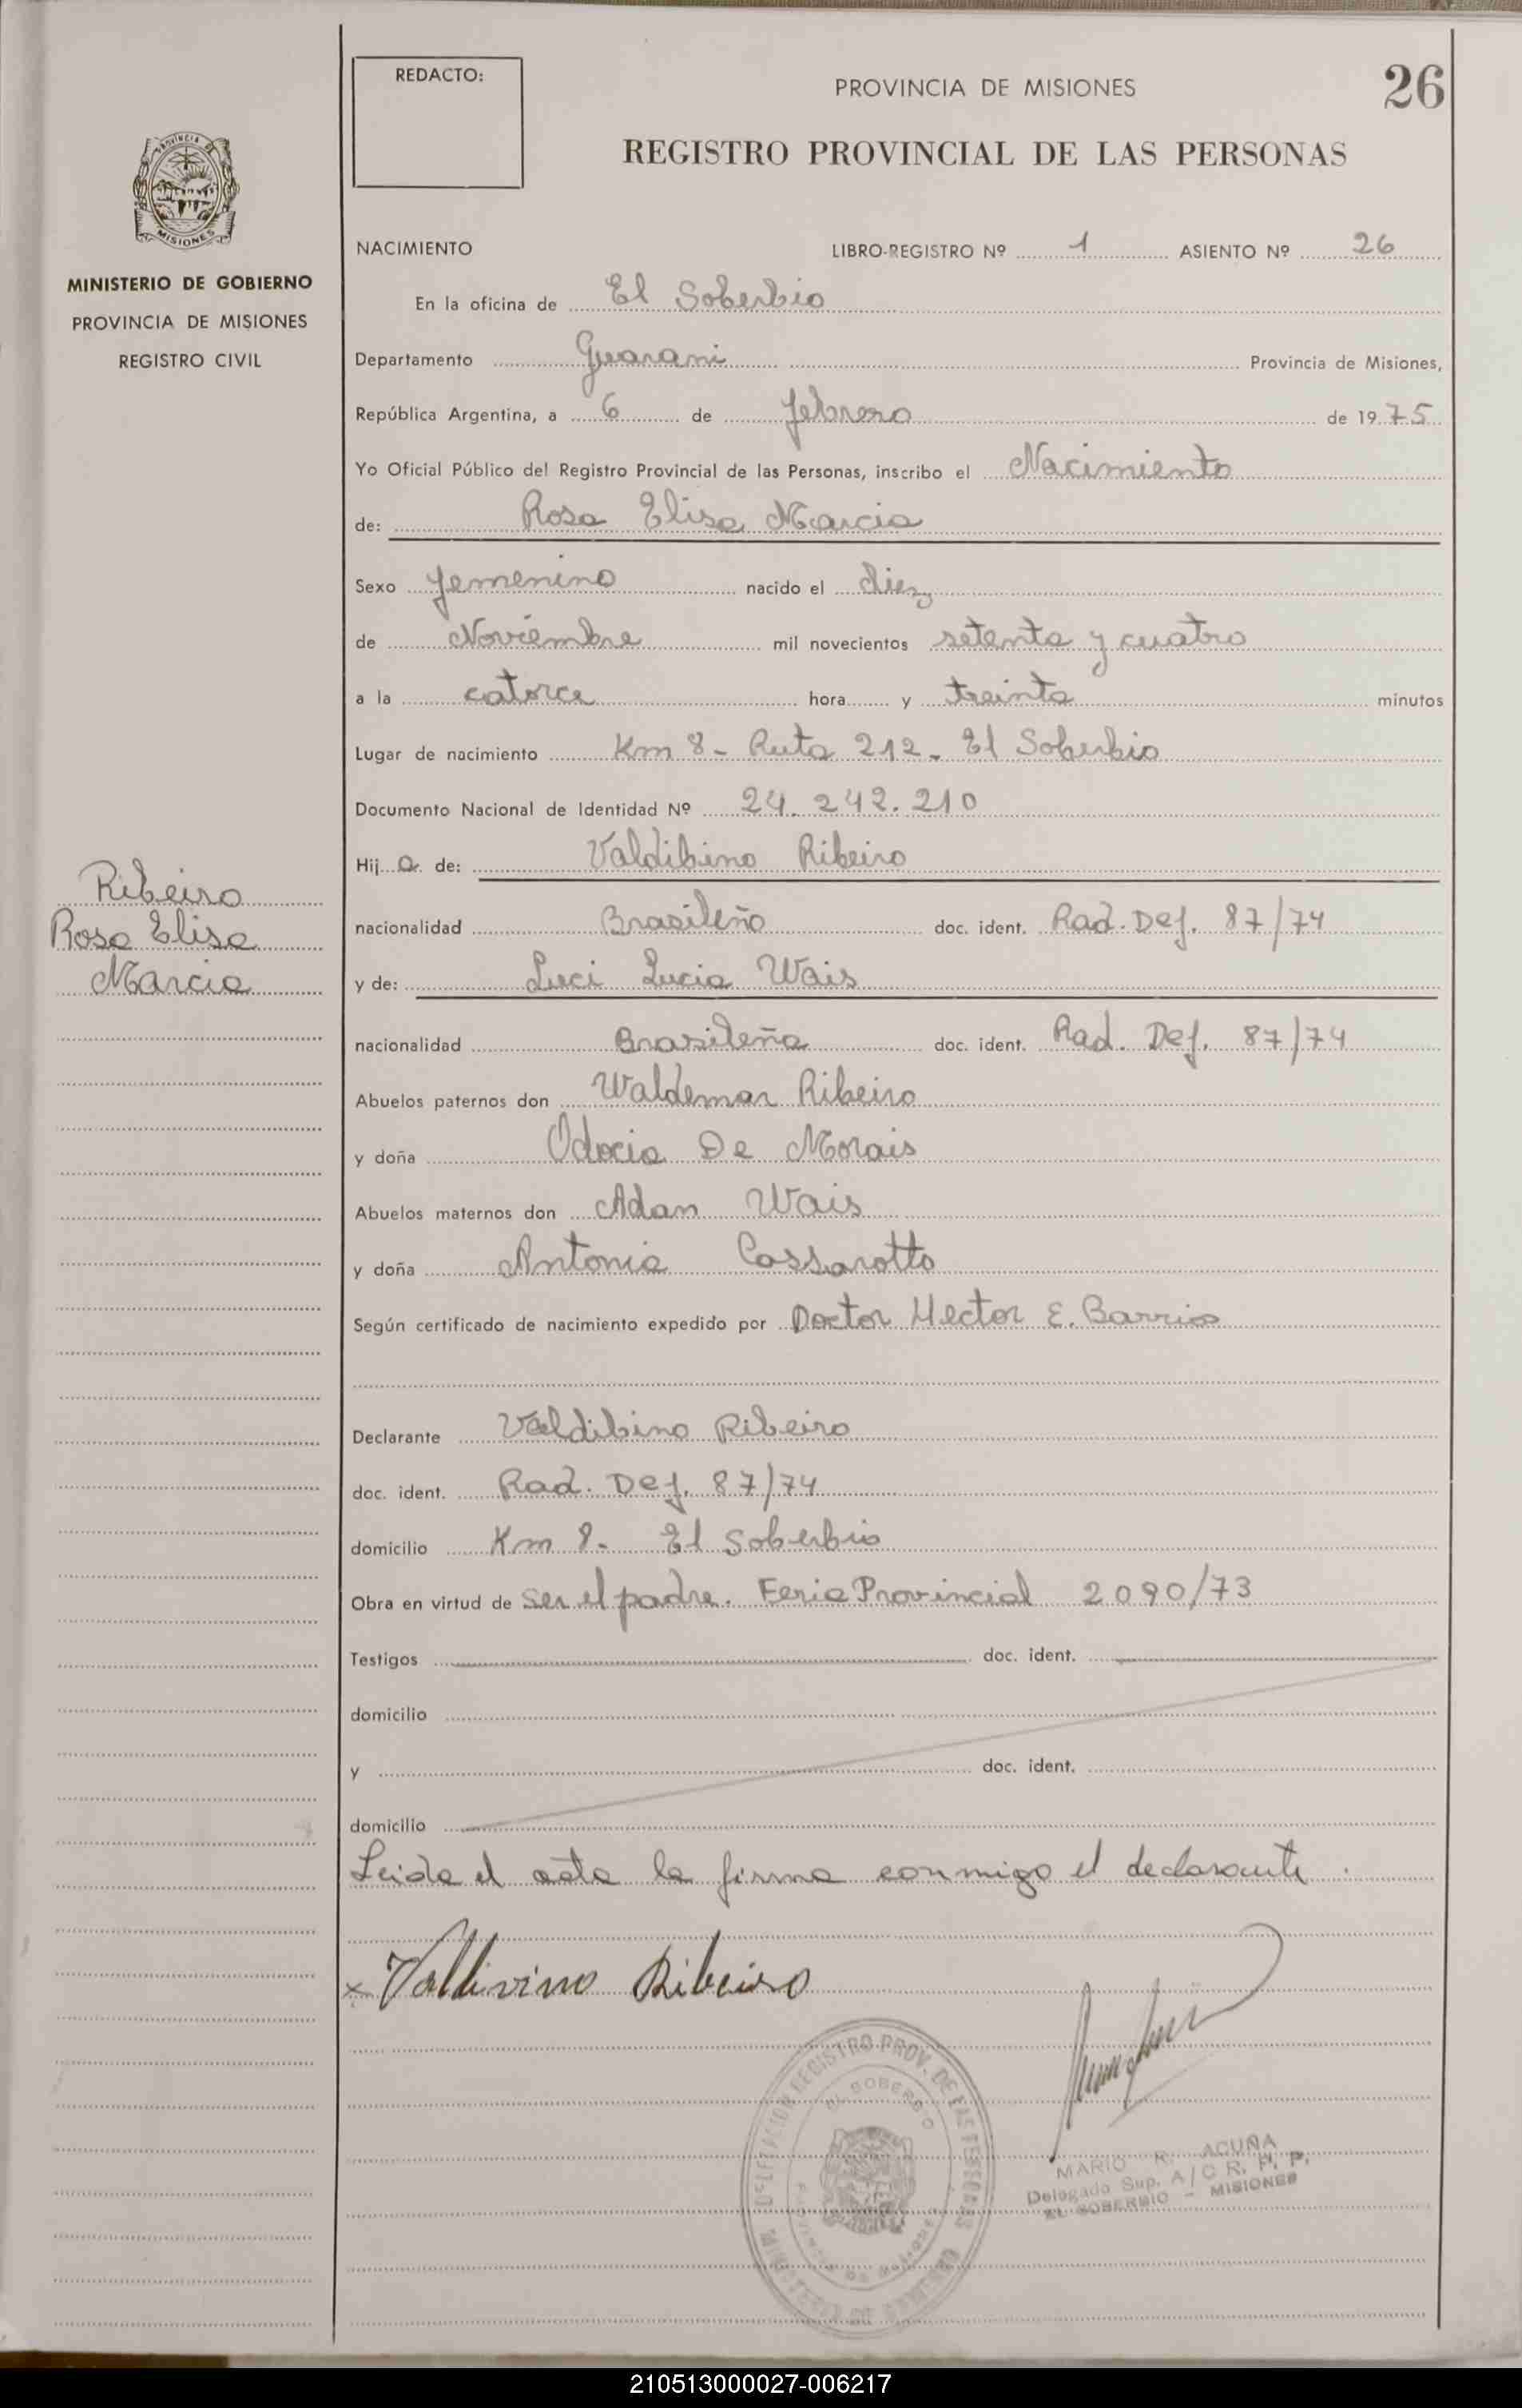 REDACTO:
PROVINCIA DE MISIONES
26
REGISTRO PROVINCIAL DE LAS PERSONAS
PROVINCIA DE
MISIONES
MINISTERIO DE GOBIERNO
PROVINCIA DE MISIONES
REGISTRO CIVIL
NACIMIENTO LIBRO-REGISTRO Nº 1 ASIENTO Nº 26
En la oficina de El Soberbio
Departamento Guarani Provincia de Misiones,
República Argentina, a 6 de febrero de 1975
Yo Oficial Público del Registro Provincial de las Personas, inscribo el Nacimiento
de: Rosa Elisa Marcia
Sexo femenino nacido el diez
de Noviembre mil novecientos setenta y cuatro
a la catorce hora y treinta minutos
Lugar de nacimiento Km 8 - Ruta 212 - El Soberbio
Documento Nacional de Identidad Nº 24.242.210
Hija de: Valdibino Ribeiro
Ribeiro
Rosa Elisa
Marcia
nacionalidad Brasileño doc. ident. Rad. Def. 87/74
y de: Luci Lucia Wais
nacionalidad Brasileña doc. ident. Rad. Def. 87/74
Abuelos paternos don Waldemar Ribeiro
y doña Odocia De Morais
Abuelos maternos don Adan Wais
y doña Antonia Cassarotto
Según certificado de nacimiento expedido por Doctor Hector E. Barrios
Declarante Valdibino Ribeiro
doc. ident. Rad. Def. 87/74
domicilio Km 8. El Soberbio
Obra en virtud de ser el padre. Feria Provincial 2090/73
Testigos doc. ident.
domicilio
y doc. ident.
domicilio
Leida el acta la firma conmigo el declarante.
x Valdivino Ribeiro
DELEGACION REGISTRO PROV. DE LAS PERSONAS
EL SOBERBIO
MINISTERIO DE GOBIERNO
MARIO R. ACUÑA
Delegado Sup. A/C R. P. P.
EL SOBERBIO - MISIONES
210513000027-006217